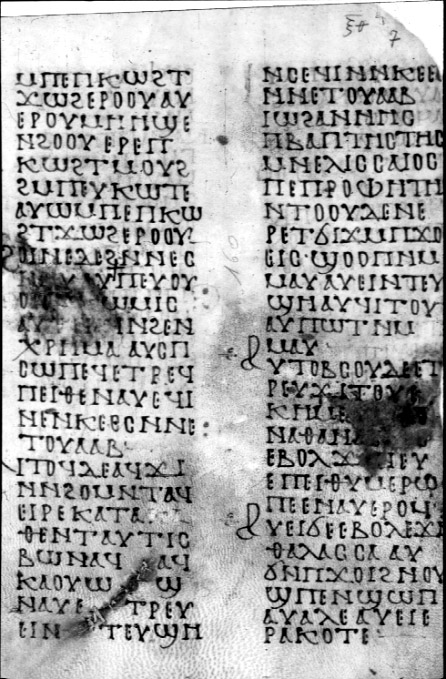 ⲝⲑ 7
ⲙⲡⲉⲡⲕⲱϩⲧ
ϫⲱϩⲉⲣⲟⲟⲩⲁⲩ
ⲉⲣⲟⲩⲙⲏⲏϣⲉ
ⲛϩⲟⲟⲩⲉⲣⲉⲡ
ⲕⲱϩⲧⲙⲟⲩϩ
ϩⲙⲡⲉⲩⲕⲱⲧⲉ
ⲁⲩⲱⲙⲡⲉⲡⲕⲱ
ϩⲧϫⲱϩⲉⲣⲟⲟⲩ
ϩⲟⲓⲛⲉⲇⲉϩⲛⲛⲉⲥ
ⲡⲉⲩⲟⲩ
ⲙⲙⲓⲥ
ⲓⲛϩⲉⲛ
ⲭⲣⲏⲙⲁⲁⲩⲥⲡ
ⲥⲱⲡⲉϥⲉⲧⲣⲉϥ
ⲡⲉⲓⲑⲉⲛⲁⲩⲉϥⲓ
ⲛⲉⲛⲕⲉⲉⲥⲛⲛⲉ
ⲧⲟⲩⲁⲁⲃ
ⲛⲧⲟϥⲇⲉⲁϥϫⲓ
ⲛⲛϩⲟⲙⲛⲧⲁϥ
ⲉⲓⲣⲉⲕⲁⲧⲁ
ⲑⲉⲛⲧⲁⲩⲧⲓⲥ
ⲃⲱⲛⲁϥ ⲁϥ
ⲕⲁⲟⲩⲱ ϣ
ⲛⲁⲩⲉ ⲧⲣⲉⲩ
ⲉⲓⲛ ⲧⲉⲩϣⲏ
ⲛⲥⲉϥⲓⲛⲛⲕⲉⲉ
ⲛⲛⲉⲧⲟⲩⲁⲁⲃ
ⲓⲱϩⲁⲛⲛⲏⲥ
ⲡⲃⲁⲡⲧⲓⲥⲧⲏⲥ
ⲙⲛⲉⲗⲓⲥⲥⲁⲓⲟⲥ
ⲡⲉⲡⲣⲟⲫⲏⲧⲏ
ⲛⲧⲟⲟⲩⲇⲉⲛⲉ
ⲣⲉⲧϭⲓϫⲙⲡϫⲟ
ⲉⲓⲥ·ϣⲟⲟⲡⲛⲙ
ⲙⲁⲩⲁⲩⲉⲓⲛⲧⲉⲩ
ϣⲏⲁⲩϥⲓⲧⲟⲩ
ⲁⲩⲡⲱⲧⲛⲙ
ⲙⲁⲩ
ⲁⲩⲧⲟⲃⲥⲟⲩⲇⲉⲉⲧ
ⲣⲉⲩϫⲓⲧⲟⲩⲉ
ⲕⲏⲙⲉ
ⲛⲁⲑⲁⲛ
ⲉⲃⲟⲗϫ ⲡⲉⲩ
ⲉⲡⲉⲓⲑⲩⲙⲉⲣⲱ
ⲡⲉⲉⲛⲁⲩⲉⲣⲟϥ
ⲁⲩⲉⲓϭⲉⲉⲃⲟⲗⲉϫ
ⲑⲁⲗⲁⲥⲥⲁⲁⲩ
ϭⲛⲡϫⲟⲓϩⲛⲟⲩ
ϣⲡⲉⲛϣⲱⲡ
ⲁⲩⲁⲗⲉⲁⲩⲉⲓⲉ
ⲣⲁⲕⲟⲧⲉ